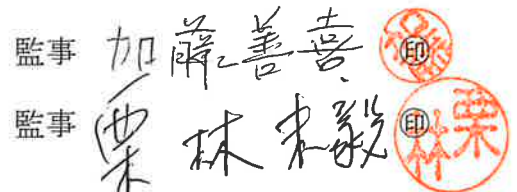 監事 加藤善喜 ㊞
監事 栗林 ㊞ 栗林